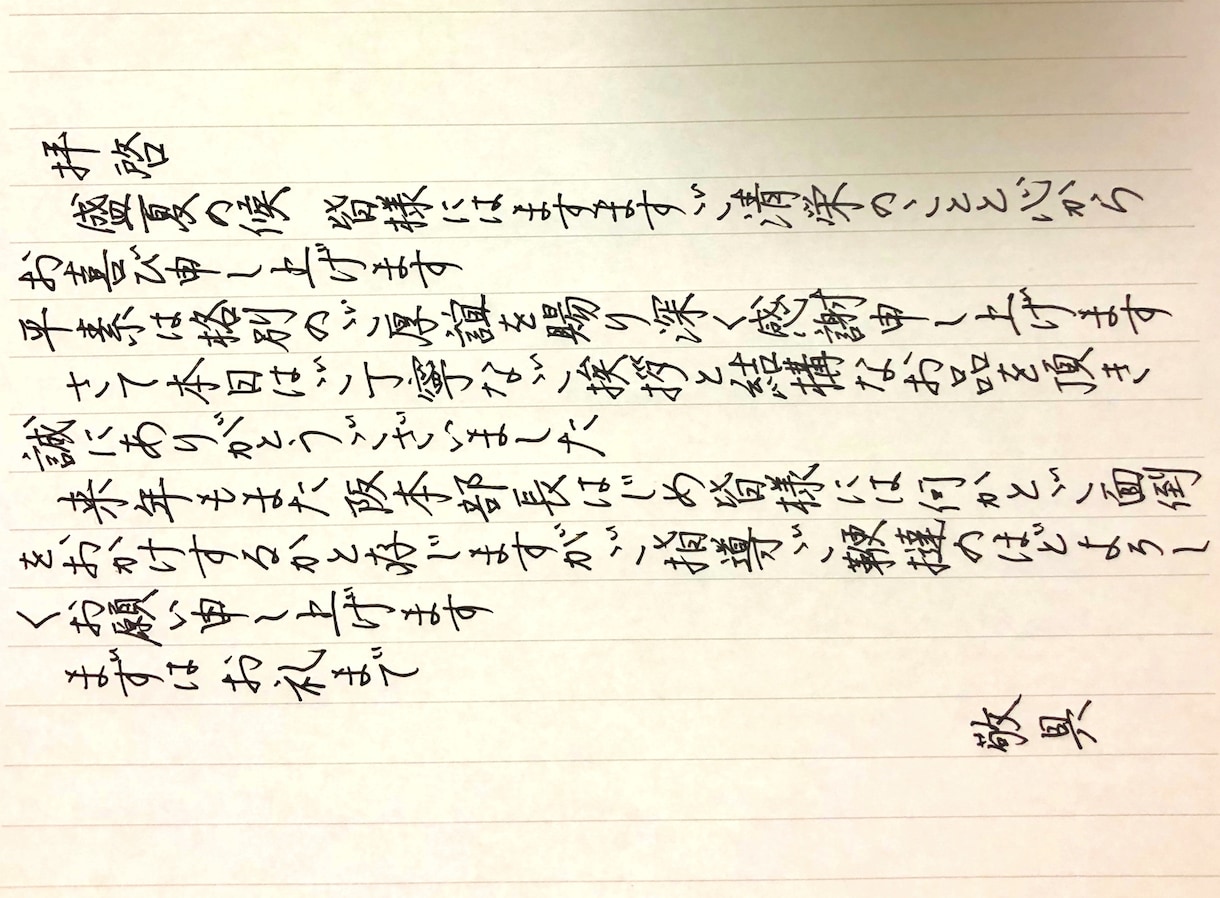 拝啓
盛夏の候 皆様にはますますご清栄のことと心から
お喜び申し上げます
平素は格別のご厚誼を賜り深く感謝申し上げます
さて本日はご丁寧なご挨拶と結構なお品を頂き
誠にありがとうございました
来年もまた阪本部長はじめ皆様には何かとご面倒
をおかけするかと存じますがご指導ご鞭撻のほどよろし
くお願い申し上げます
まずは お礼まで
敬具